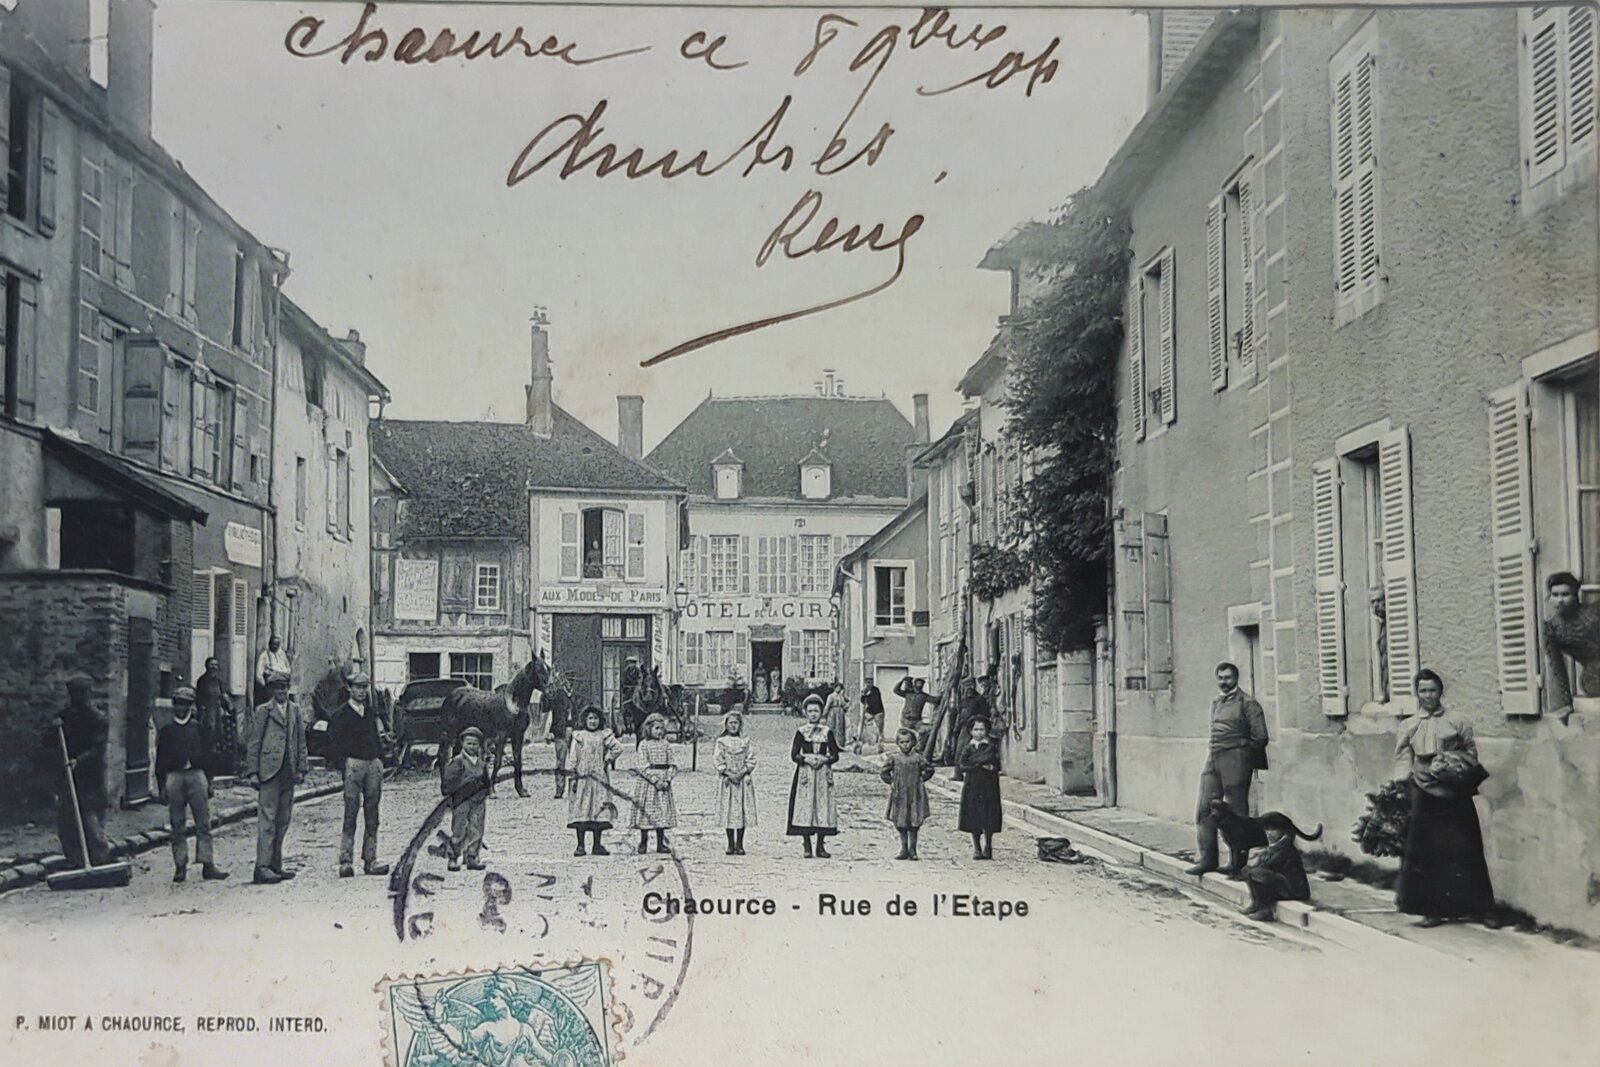 Chaource ce 8 9bre 04
Amitiés,
René
AUX MODES DE PARIS
ÔTEL DE LA GIRA
Chaource - Rue de l'Etape
P. MIOT A CHAOURCE, REPROD. INTERD.